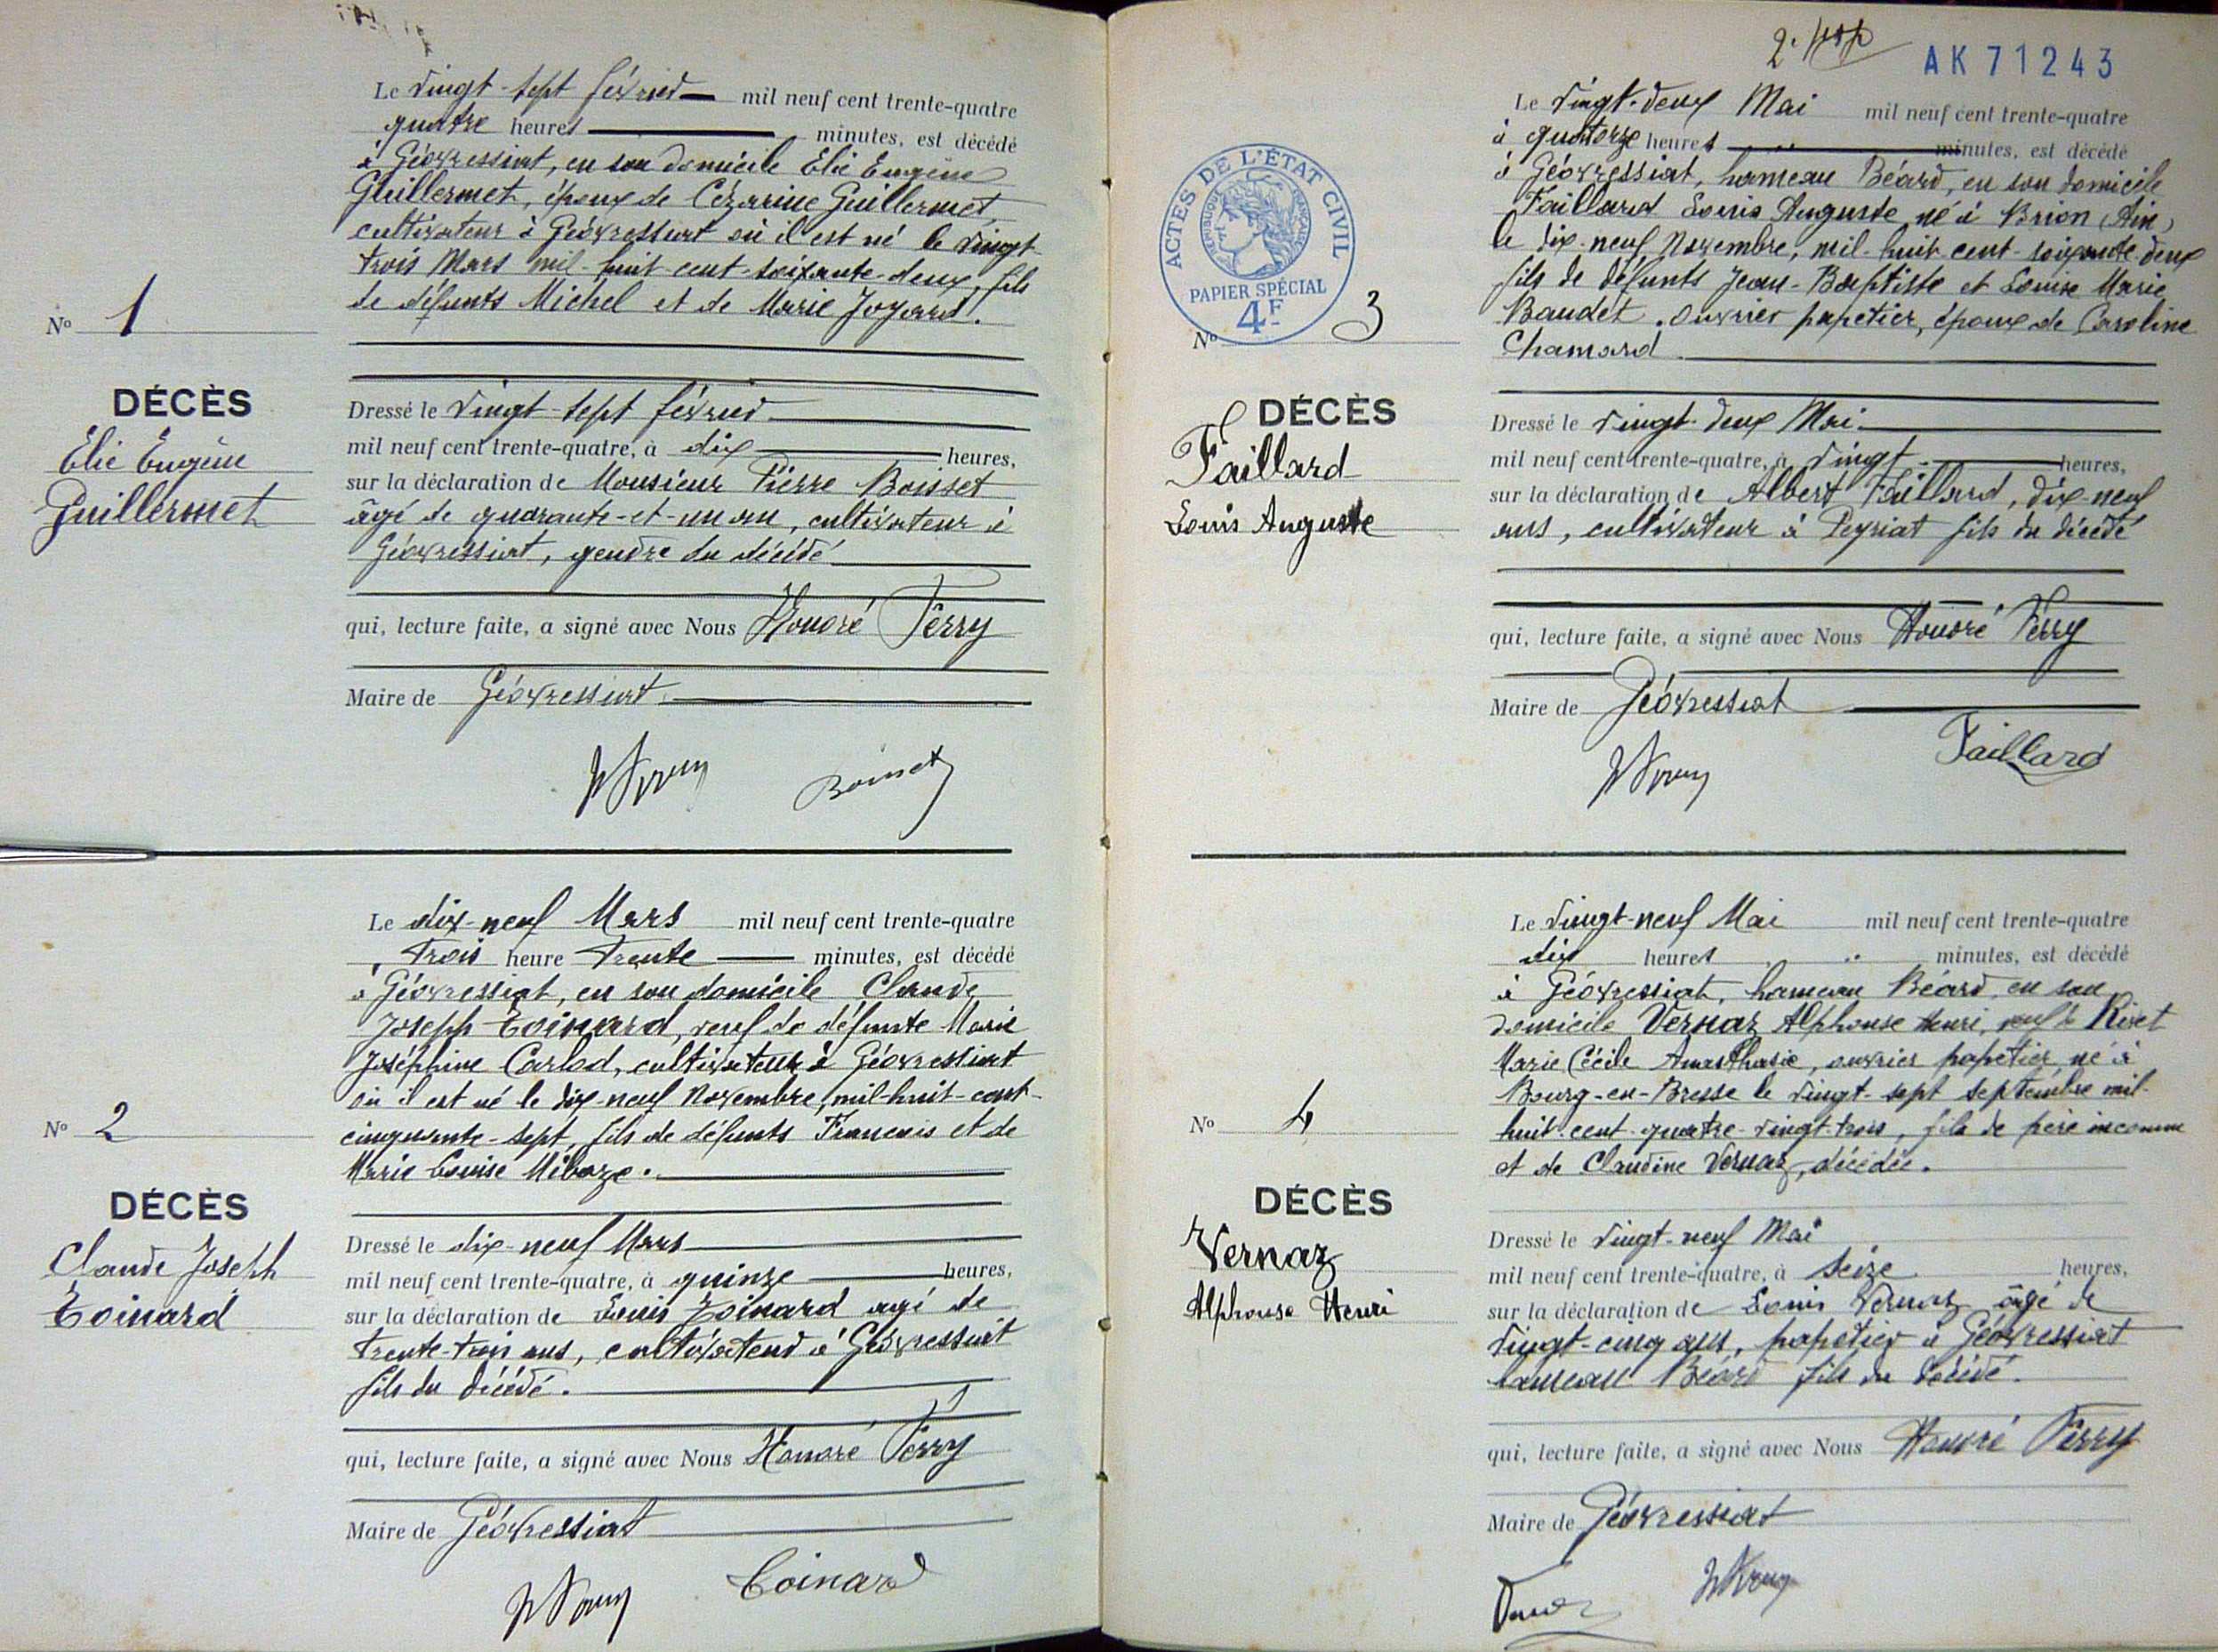 Le vingt-sept février mil neuf cent trente-quatre
quatre heures minutes, est décédé
à Géovressiat, en son domicile Elie Eugène
Guillermet, époux de Cézarine Guillermet,
cultivateur à Géovressiat où il est né le vingt-
trois Mars mil-huit-cent-soixante-deux, fils
de défunts Michel et de Marie Joyard.
No 1
DÉCÈS
Elie Eugène
Guillermet
Dressé le vingt-sept février
mil neuf cent trente-quatre, à dix heures,
sur la déclaration de Monsieur Pierre
âgé de quarante-et-un an, cultivateur à
Géovressiat, gendre du décédé
qui, lecture faite, a signé avec Nous Honoré Ferry
Maire de Géovressiat
Le dix-neuf Mars mil neuf cent trente-quatre
trois heure trente minutes, est décédé
à Géovressiat, en son domicile Claude
Joseph Toinard, veuf de défunte Marie
Joséphine Carlod, cultivateur à Géovressiat
où il est né le dix-neuf Novembre, mil-huit-cent-
cinquante-sept, fils de défunts Francois et de
Marie Louise
No 2
DÉCÈS
Claude Joseph
Toinard
Dressé le dix-neuf Mars
mil neuf cent trente-quatre, à quinze heures,
sur la déclaration de Louis Toinard agé de
trente-trois ans, cultivateur à Géovressiat
fils du décédé.
qui, lecture faite, a signé avec Nous Honoré Ferry
Maire de Géovressiat
Toinard
AK 71243
Le vingt-deux Mai mil neuf cent trente-quatre
à quatorze heures minutes, est décédé
à Géovressiat, hameau Béard, en son domicile
Faillard Louis Auguste né à Brion (Ain)
le dix-neuf Novembre, mil-huit cent-soixante-deux
fils de défunts Jean-Baptiste et Louise Marie
Baudet. ouvrier papetier, époux de Caroline
Chamard
ACTES DE L'ÉTAT CIVIL
RÉPUBLIQUE FRANÇAISE
PAPIER SPÉCIAL
4F
No 3
DÉCÈS
Faillard
Louis Auguste
Dressé le vingt-deux Mai
mil neuf cent trente-quatre, à vingt heures,
sur la déclaration de Albert Faillard, dix-neuf
ans, cultivateur à Peyriat fils du décédé
qui, lecture faite, a signé avec Nous Honoré Ferry
Maire de Géovressiat
Faillard
Le vingt-neuf Mai mil neuf cent trente-quatre
dix heures minutes, est décédé
à Géovressiat, hameau Béard, en son
domicile Vernaz Alphonse Henri, veuf de
Marie Cécile Anasthasie, ouvrier papetier, né à
Bourg-en-Bresse le vingt-sept septembre mil-
huit-cent-quatre-vingt-trois, fils de père inconnu
et de Claudine Vernaz, décédée.
No 4
DÉCÈS
Vernaz
Alphonse Henri
Dressé le vingt-neuf Mai
mil neuf cent trente-quatre, à seize heures,
sur la déclaration de Louis Vernaz âgé de
vingt-cinq ans, papetier à Géovressiat
hameau Béard fils du décédé.
qui, lecture faite, a signé avec Nous Honoré Ferry
Maire de Géovressiat